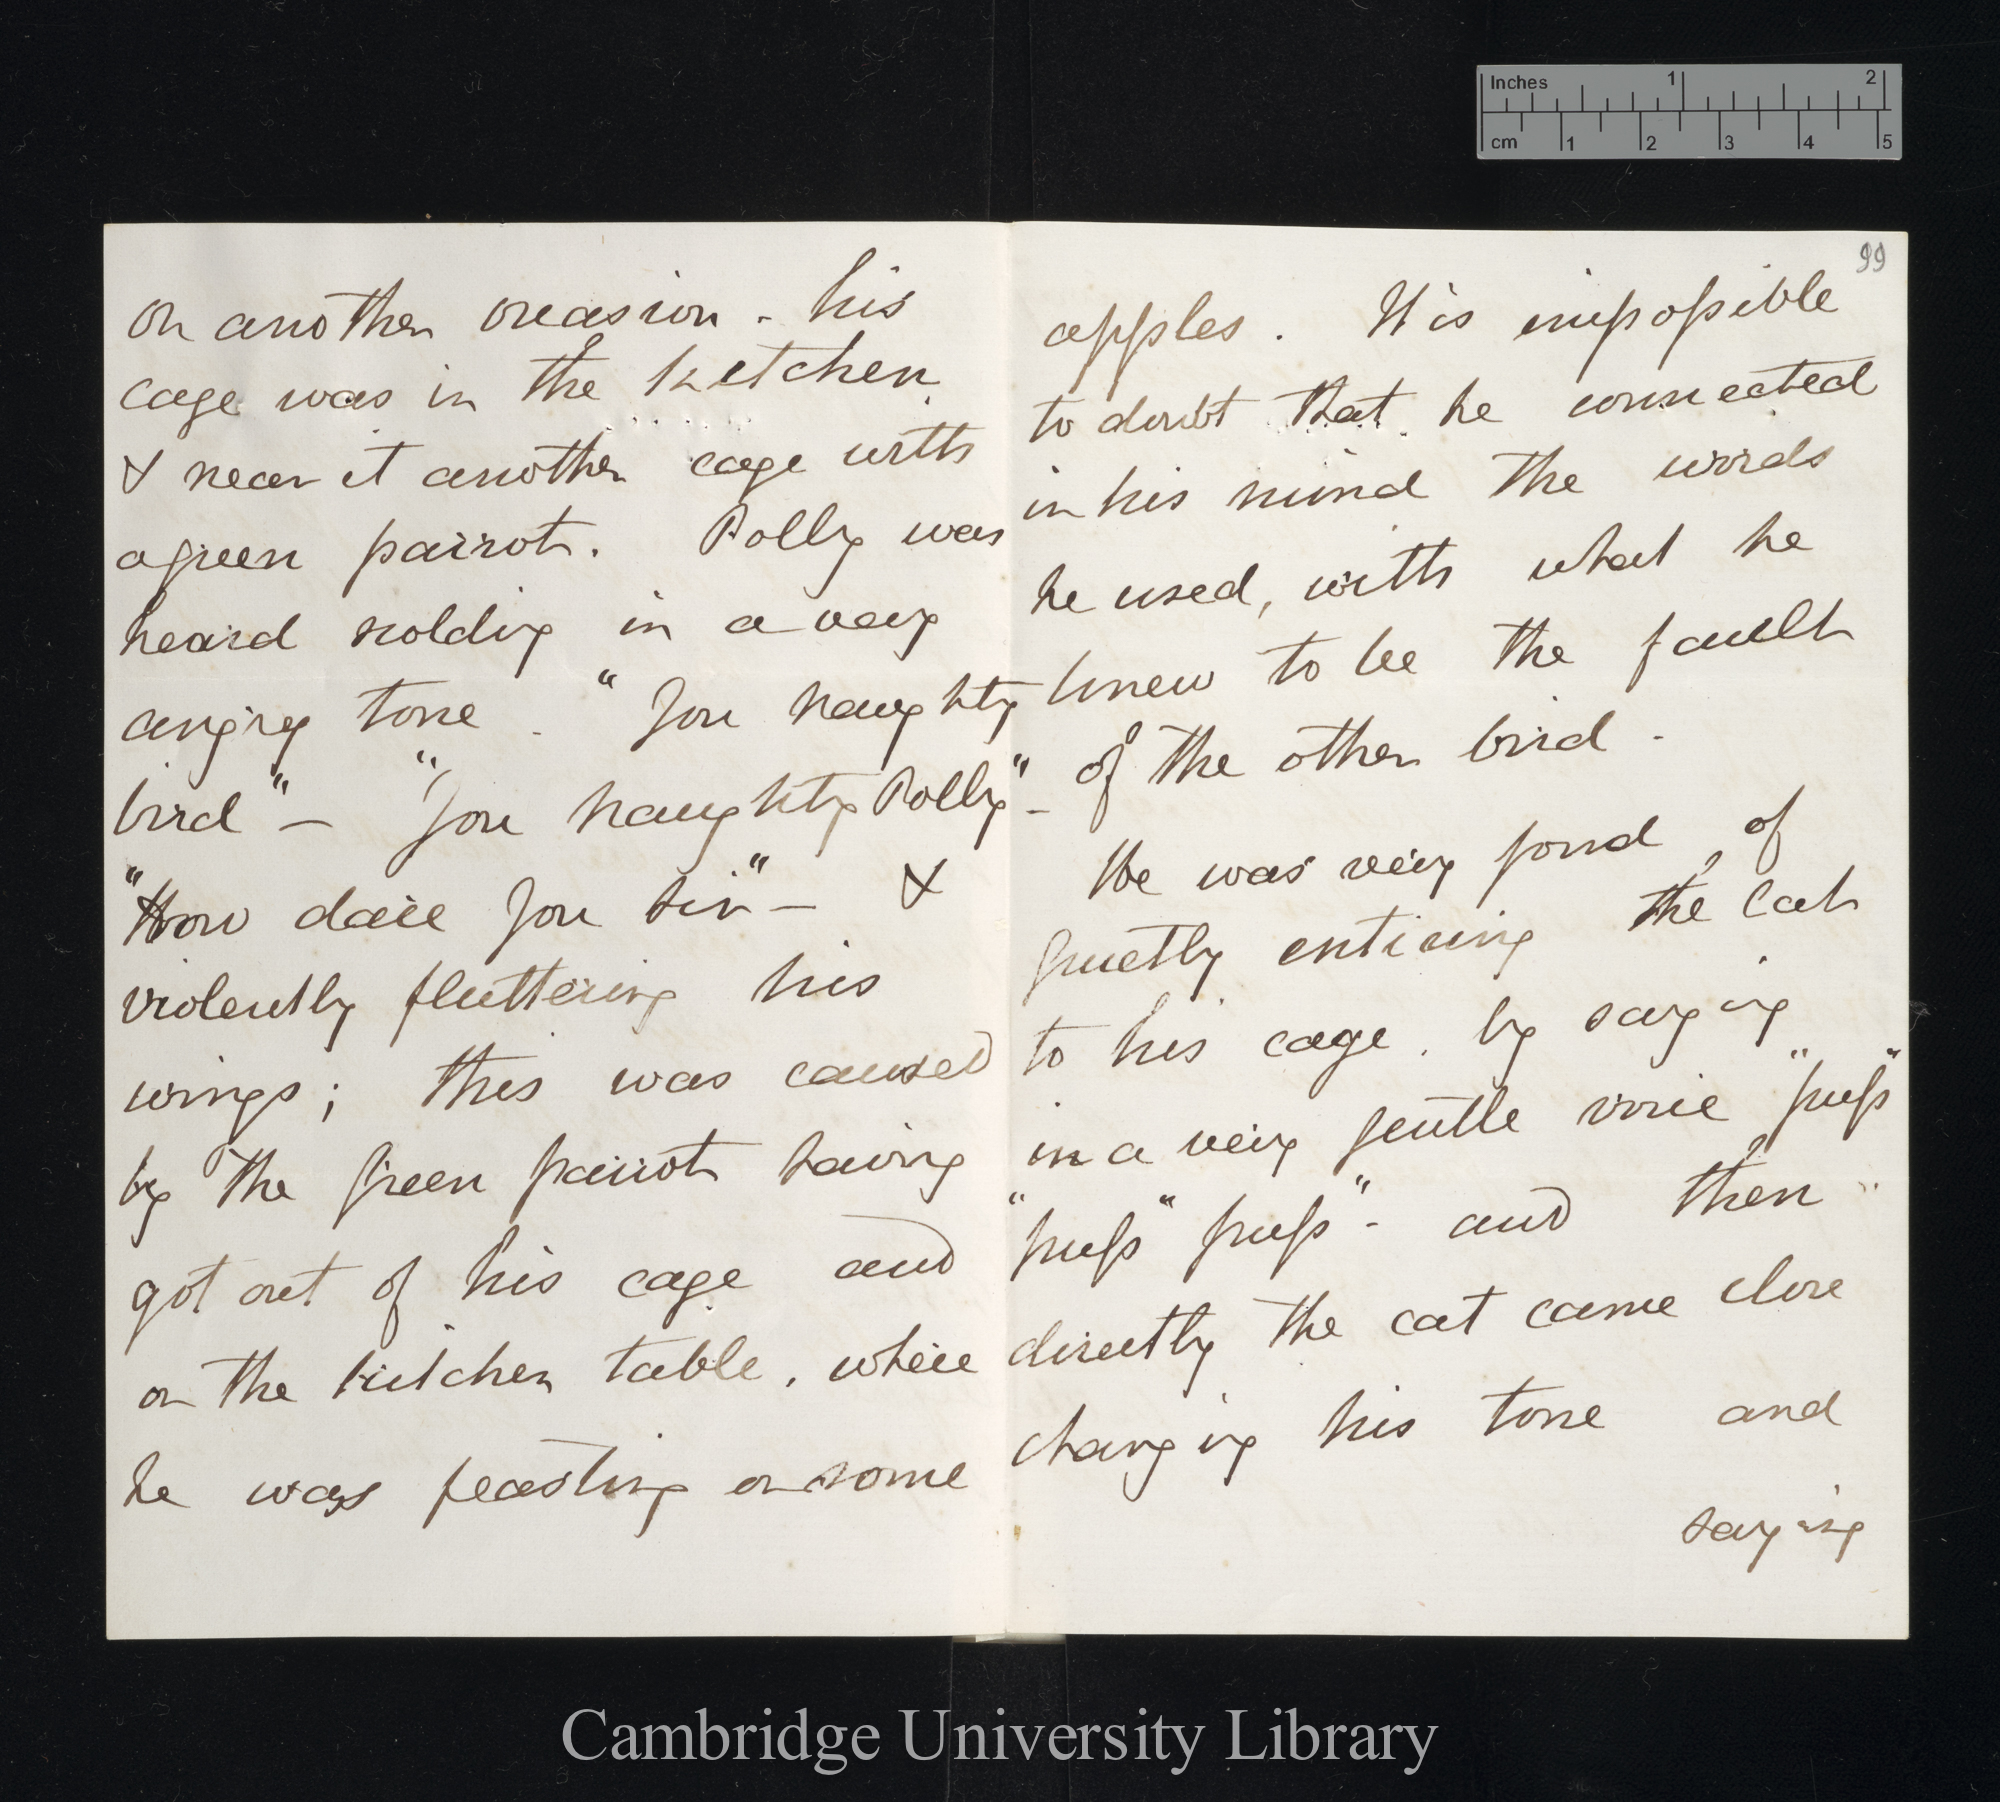 Inches 1 2
cm 1 2 3 4 5
on another occasion - his
cage was in the kitchen
& near it another cage with
a green parrot. Polly was
heard scolding in a very
angry tone - "You naughty
bird" - "You naughty Polly" -
"How dare you sir" - &
violently fluttering his
wings; this was caused
by the green parrot having
got out of his cage and
on the kitchen table, where
he was feasting on some
99
apples. It is impossible
to doubt that he connected
in his mind the words
he used, with what he
knew to be the fault
of the other bird -
He was very fond, of
quietly enticing the cat
to his cage, by saying
in a very gentle voice "puss"
"puss" puss" - and then
directly the cat came close
changing his tone and
saying
Cambridge University Library